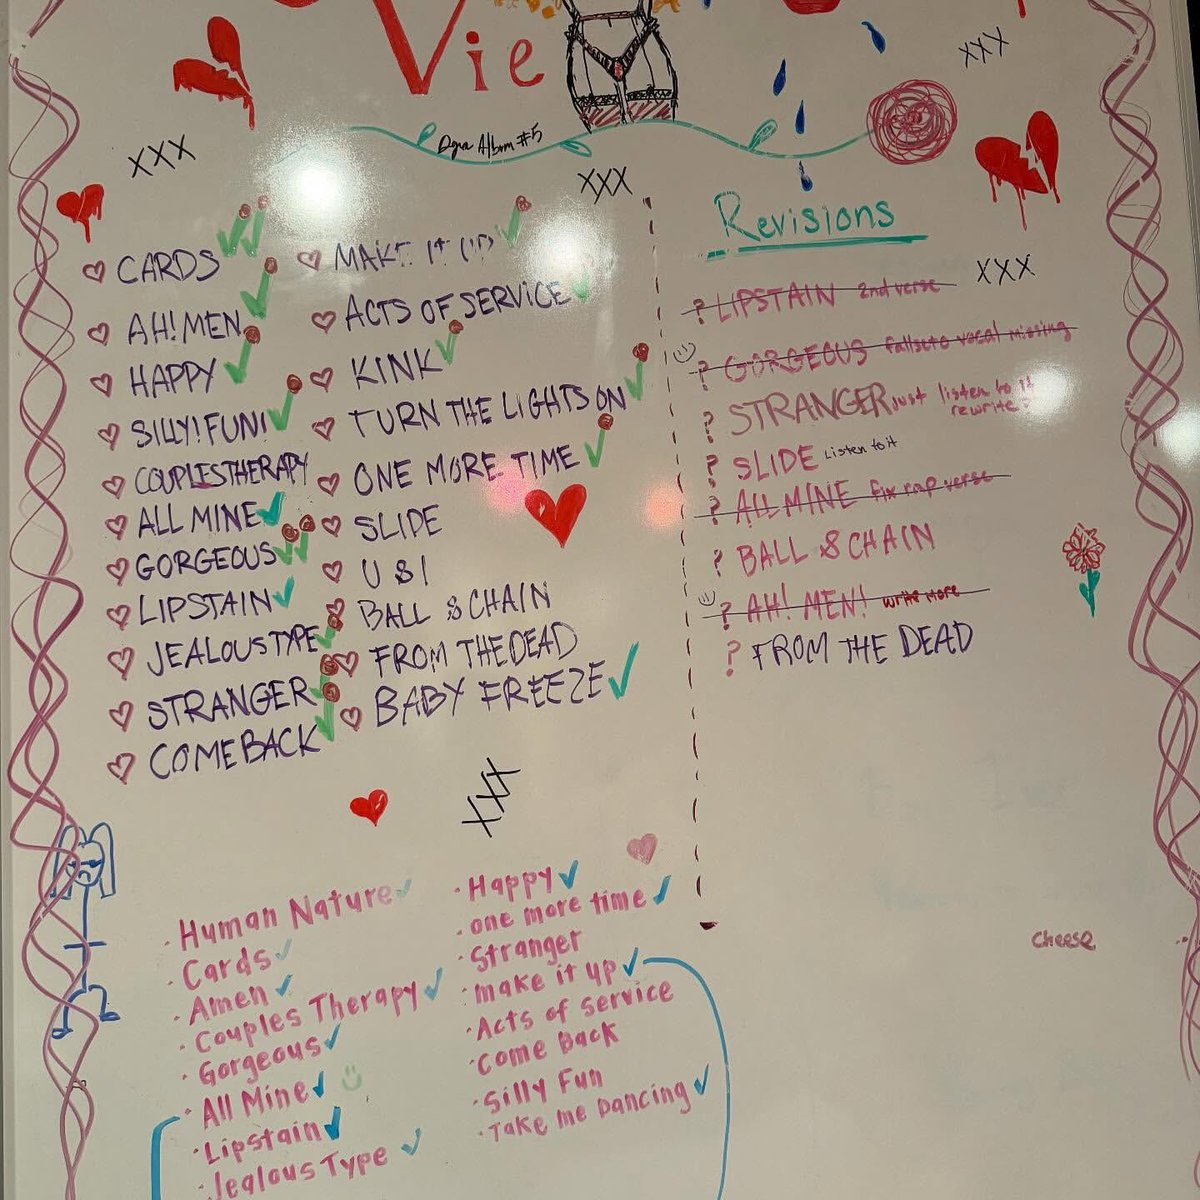 Vie
XXX
Album #5
XXX
XXX
CARDS
AH! MEN
HAPPY
SILLY! FUN!
COUPLES THERAPY
ALL MINE
GORGEOUS
LIPSTAIN
JEALOUS TYPE
STRANGER
COME BACK
MAKE IT UP
ACTS OF SERVICE
KINK
TURN THE LIGHTS ON
ONE MORE TIME
SLIDE
U & I
BALL & CHAIN
FROM THE DEAD
BABY FREEZE
Revisions
XXX
? LIPSTAIN 2nd verse
? GORGEOUS falseto vocal missing
? STRANGER just listen to it
rewrite?
? SLIDE Listen to it
? ALL MINE fix rap verse
? BALL & CHAIN
? AH! MEN! write more
? FROM THE DEAD
XXX
· Human Nature
· Cards
· Amen
· Couples Therapy
· Gorgeous
· All Mine
· Lipstain
· Jealous Type
· Happy
· one more time
· Stranger
· make it up
· Acts of Service
· Come Back
· Silly Fun
· Take me Dancing
cheese